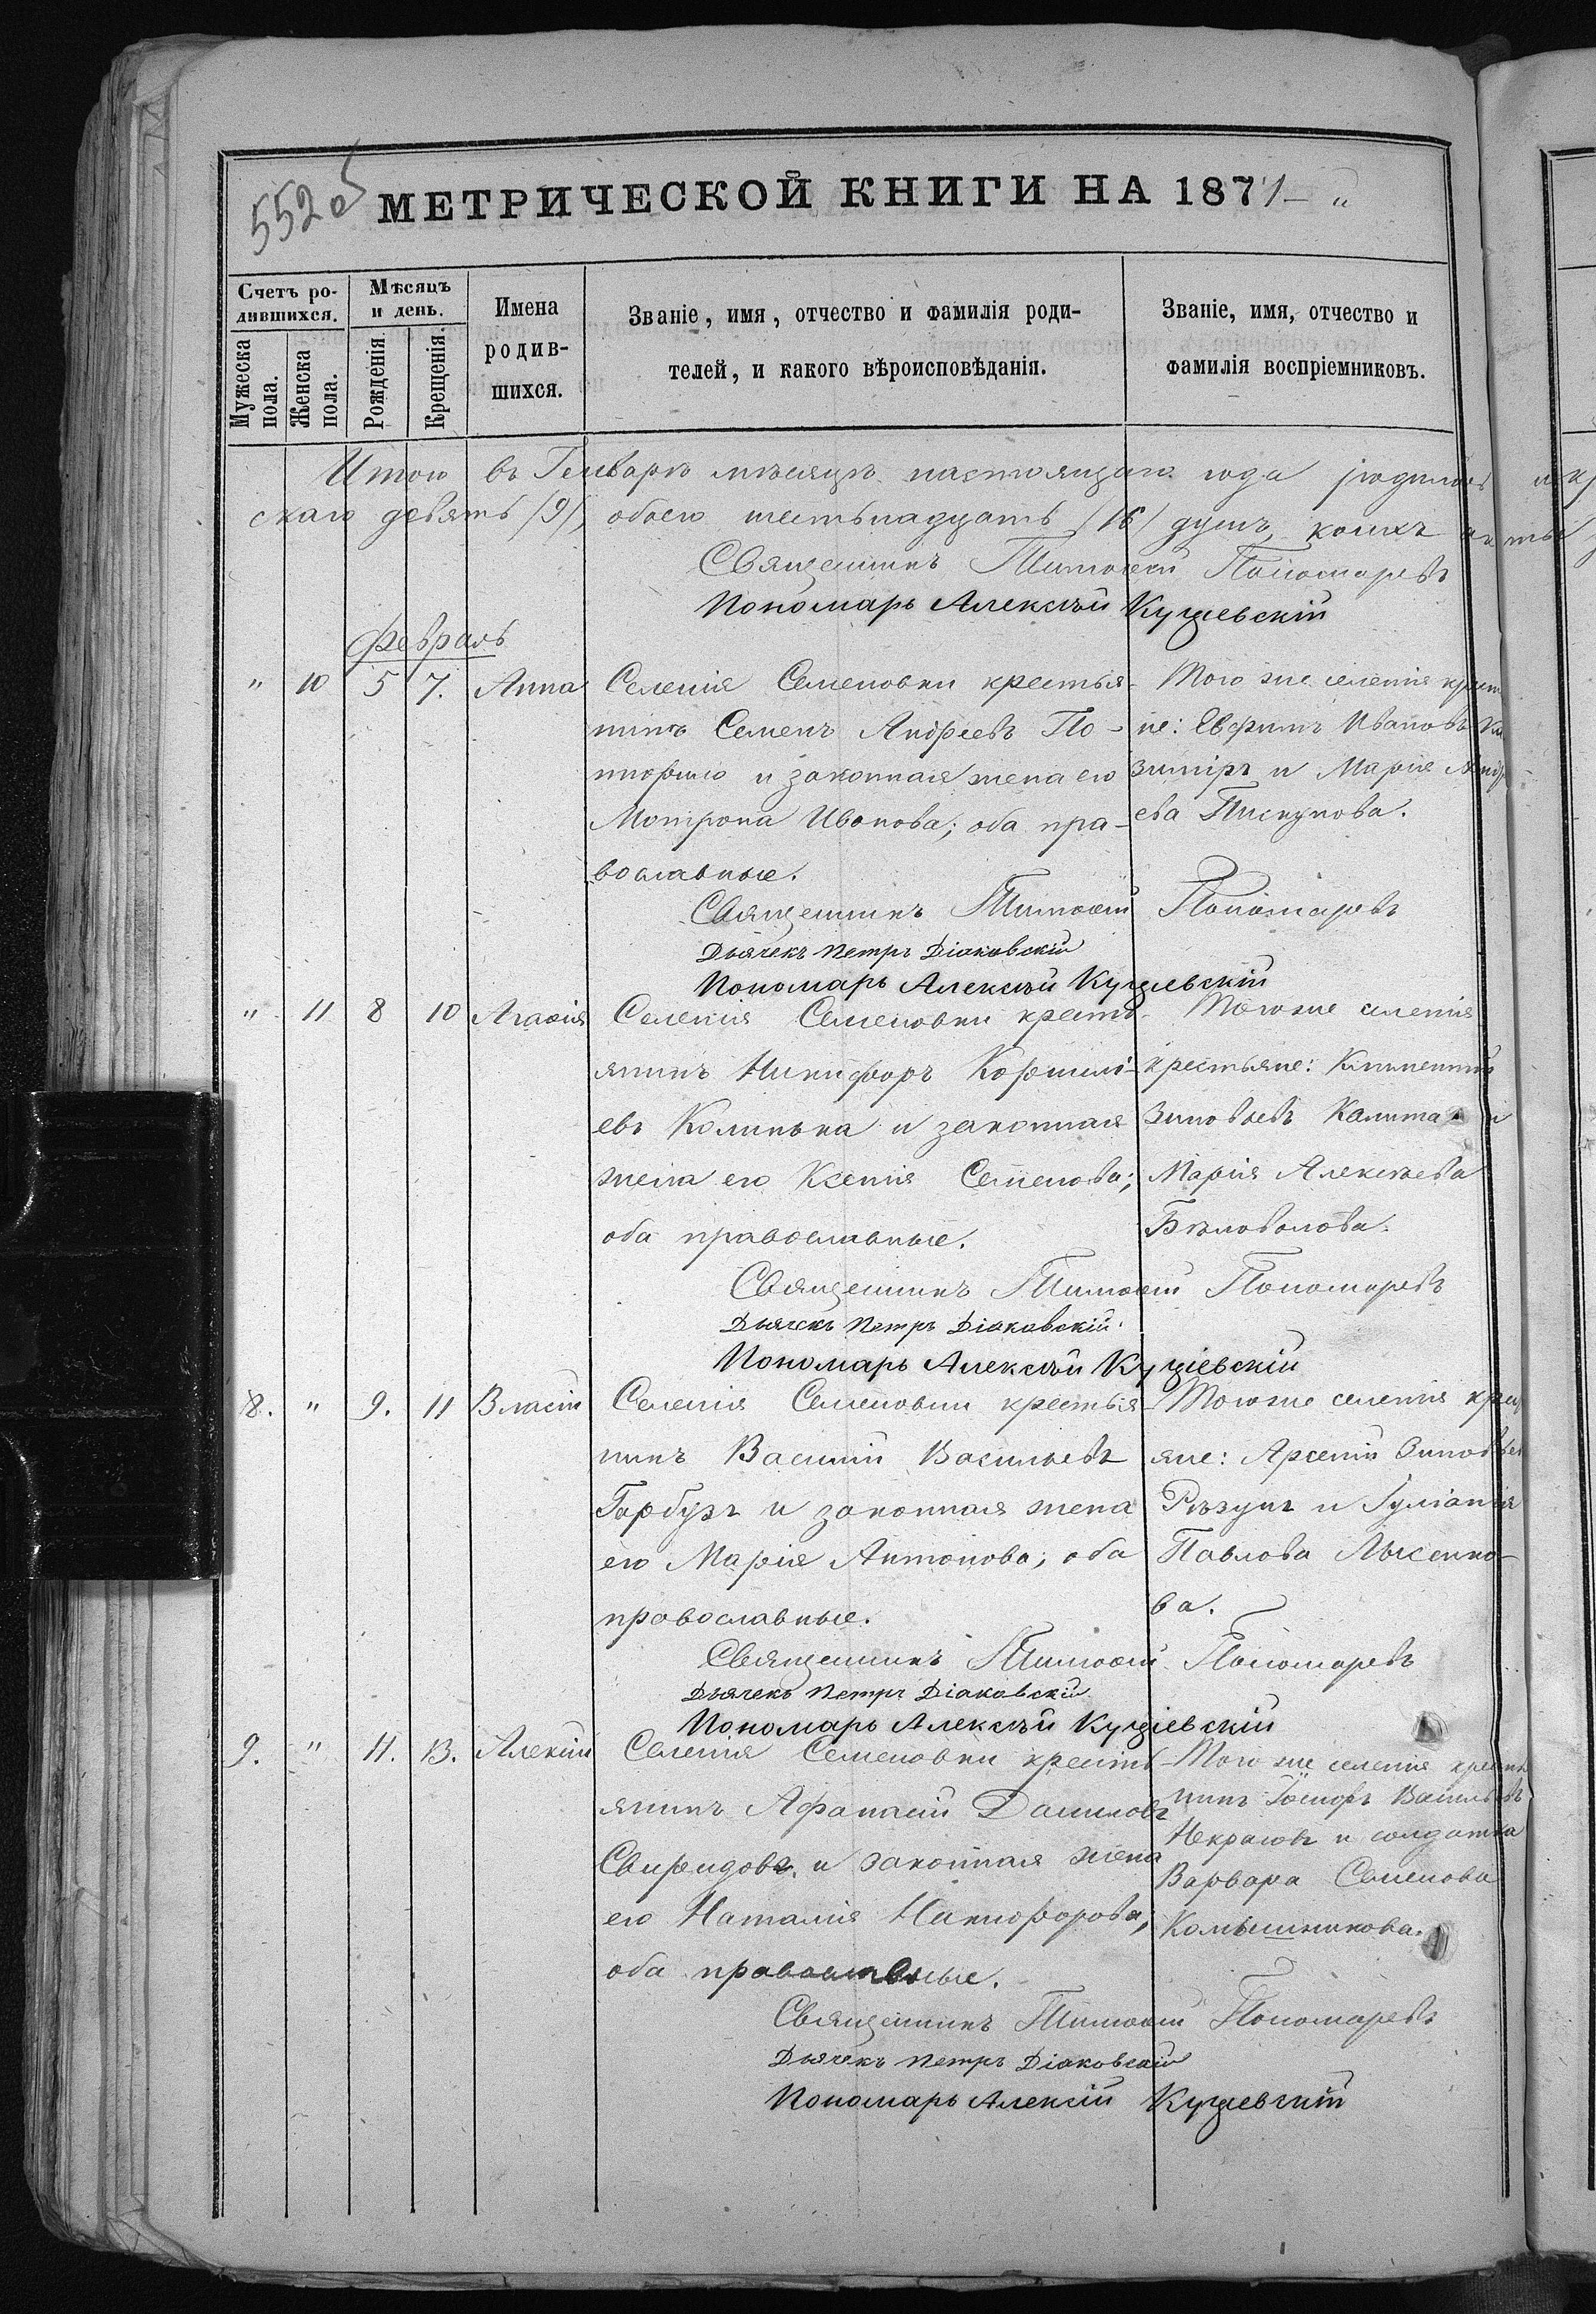 552 об
МЕТРИЧЕСКОЙ КНИГИ НА 1871 - "
Счетъ ро-
дившихся.
Мужеска
пола.
Женска
пола.
Мѣсяцъ
и день.
Рожденія.
Крещенія.
Имена
родив-
шихся.
Званіе, имя, отчество и фамилія роди-
телей, и какого вѣроисповѣданія.
Званіе, имя, отчество и
фамилія воспріемниковъ.
Итого въ Генварѣ мѣсяцѣ настоящаго года родилось
скаго девять /9/, обоего шестьнадцать /16/ душъ, коихъ
Священникъ Тимоѳей Пономаревъ
Пономарь Алексѣй Кущевскій
Февраль
" 10 5 7. Анна
Селенія Семеновки крестья-
нинъ Семенъ Андреевъ По-
и законная жена его
Мотрона Иванова; оба пра-
вославные.
Того же селенія крест
не: Ефримъ Ивановъ
и Марія Андр
ева Пискунова.
Священникъ Тимоѳей Пономаревъ
Дьячекъ Петръ Діаковскій
Пономарь Алексѣй Кущевскій
" 11 8 10 Агаѳія
Селенія Семеновки кресть-
янинъ Никифоръ Корнилі-
евъ Калинька и законная
жена его Ксенія Семенова;
оба православные.
Того же селенія
крестьяне: Климентій
Зиновьевъ Калита и
Марія Алексѣева
Бѣловолова.
Священникъ Тимоѳей Пономаревъ
Дьячекъ Петръ Діаковскій.
Пономарь Алексѣй Кущевскій
8. " 9. 11 Власій
Селенія Семеновки крестья-
нинъ Василій Васильевъ
Гарбузъ и законная жена
его Марія Антонова; оба
православные.
Того же селенія крест
яне: Арсеній Зиновьев
Рѣзунъ и Іуліанія
Павлова Лысенко-
ва.
Священникъ Тимоѳей Пономаревъ
Дьячекъ Петръ Діаковскій
Пономарь Алексѣй Кущевскій
9. " 11. 13. Алексій
Селенія Семеновки кресть-
янинъ Афанасій Даниловъ
Свиридовъ и законная жена
его Наталія Никифорова;
оба православные.
Того же селенія крестья
нинъ Васильевъ
Некрасовъ и солдатка
Варвара Семенова
Камышникова.
Священникъ Тимоѳей Пономаревъ
Дьячекъ Петръ Діаковскій
Пономарь Алексій Кущевскій